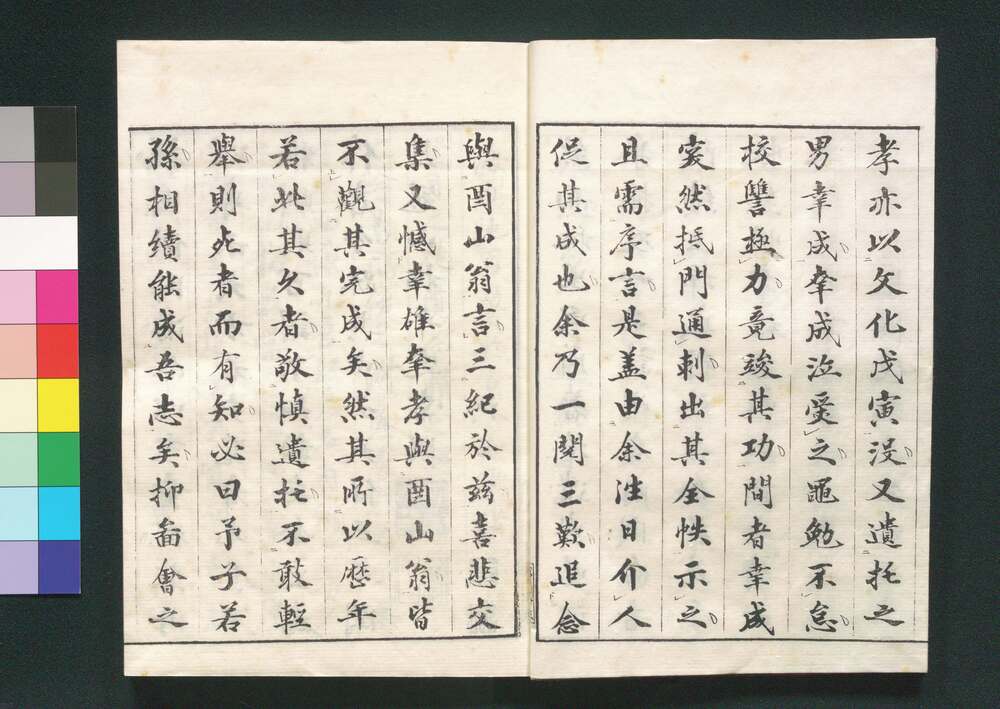 孝亦以文化戊寅没又遺托之
男幸成幸成泣愛之黽勉不怠
校讐極力竟竣其功間者幸成
突然抵門通刺出其全帙示之
且需序言是盖由余往日介人
促其成也余乃一閲三歎追念
與酉山翁言三紀於玆喜悲交
集又憾幸雄幸孝與酉山翁皆
不觀其完成矣然其所以歴年
若此其久者敬慎遺托不敢輕
舉則死者而有知必曰予子若
孫相續能成吾志矣抑畣會之